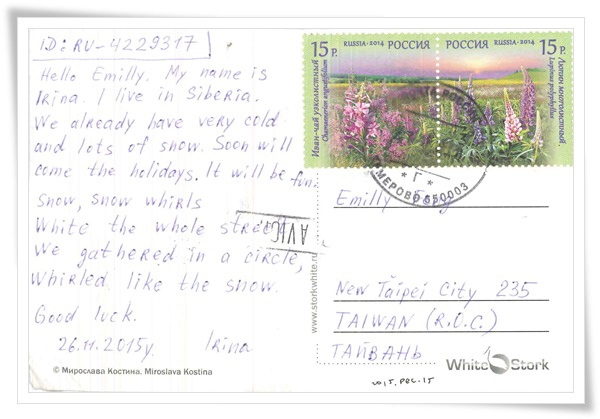 ID: RU-4229317!
Hello Emilly. My name is
Irina. I live in Siberia.
We already have very cold
and lots of snow. Soon will
come the holidays. It will be fun.
Snow, snow whirls
White the whole street
We gathered in a circle,
Whirled like the snow.
Good luck.
26.11.2015г. Irina
© Мирослава Костина. Miroslava Kostina
15 Р. RUSSIA·2014 РОССИЯ
Иван-чай узколистный
Chamaenerion angustifolium
РОССИЯ RUSSIA·2014 15 Р.
Люпин многолистный
Lupinus polyphyllus
КЕМЕРОВО 650003
* Г *
AVIA
www.storkwhite.ru
Emilly
New Taipei City 235
TAIWAN (R.O.C.)
ТАЙВАНЬ
White Stork
2015. DEC. 15